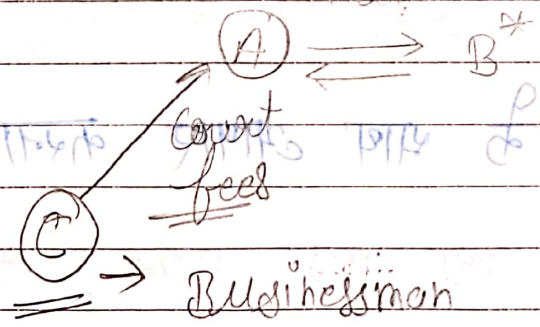 A → B*
court
fees
C → Businessman